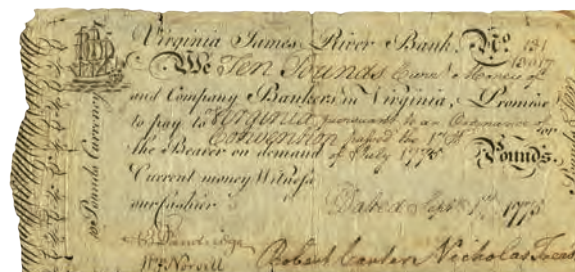 Virginia James River Bank, No. 131
10017
We Ten Pounds Curr. Money of
and Company Bankers in Virginia, Promise
to pay to Virginia pursuant to an Ordinance of
Convention passed the 17th or
the Bearer on demand of July 1775 Pounds.
Current money Witness
our Cashier
Dated Sept. 1st, 1775
Dandridge
Wm Norvell Robert Carter Nicholas Treas
10 Pounds Currency
Pounds Ten